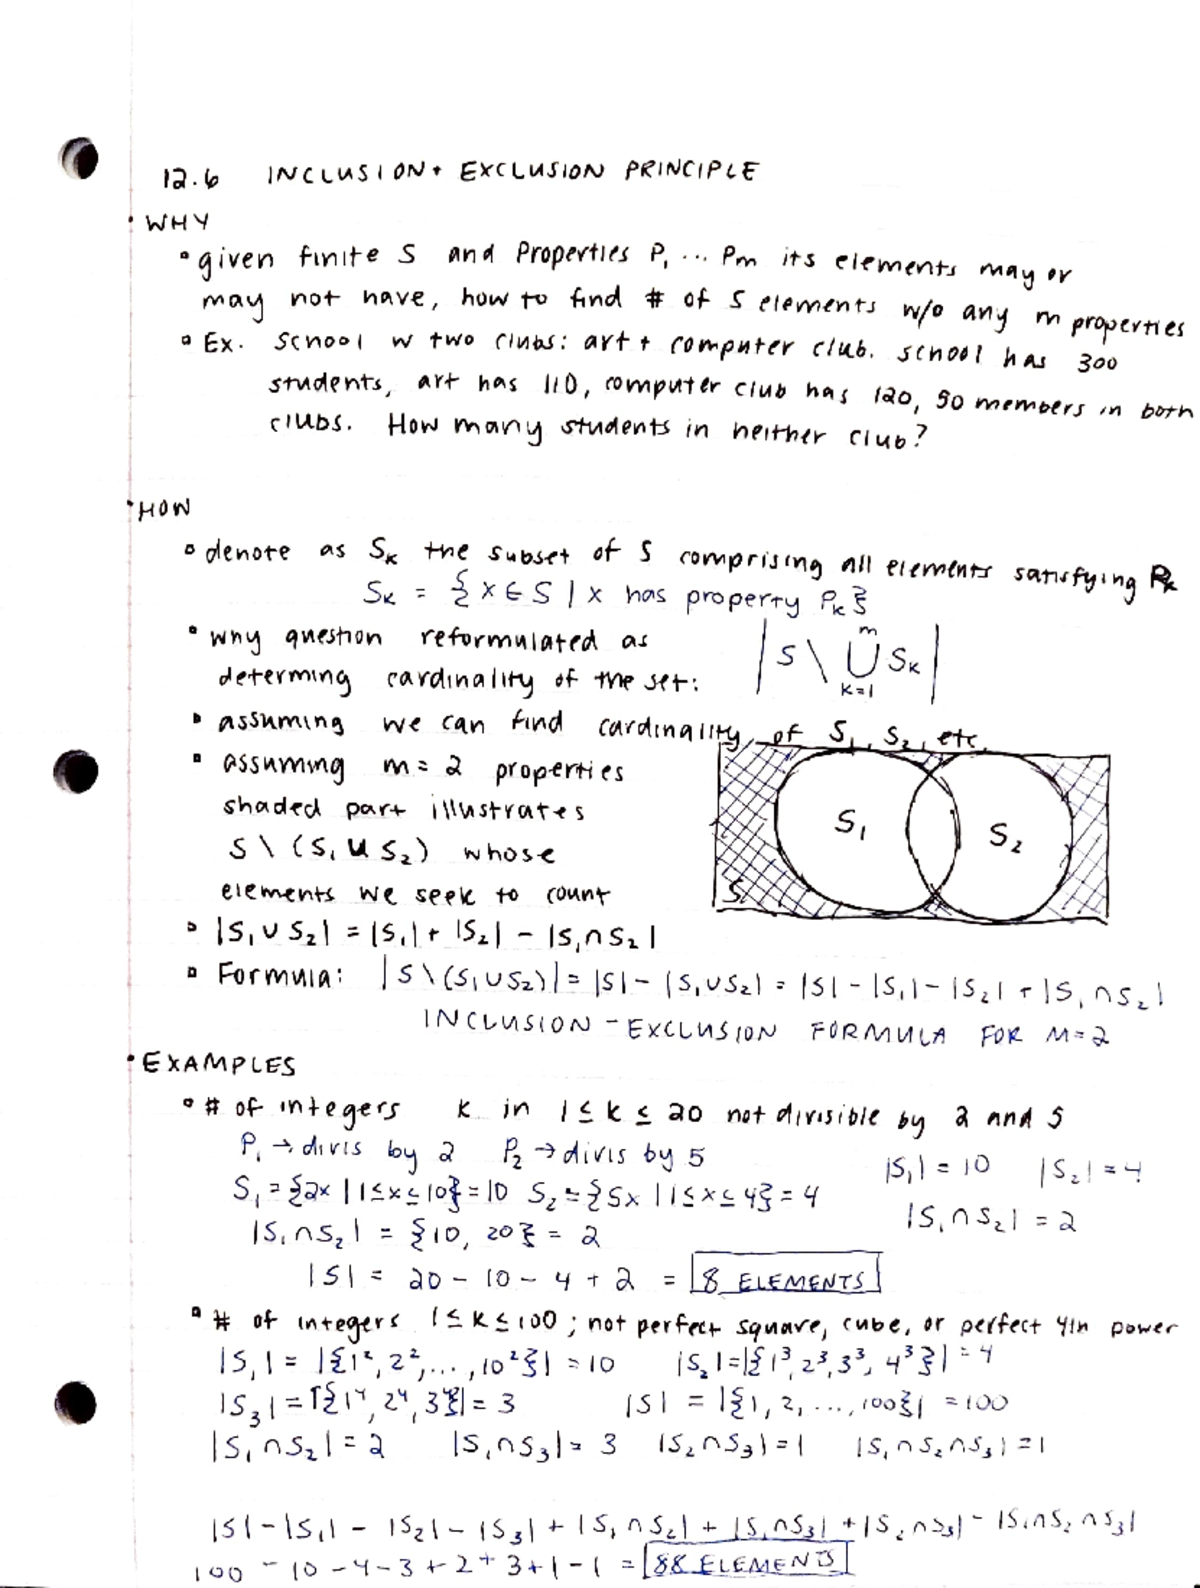 12.6 INCLUSION + EXCLUSION PRINCIPLE
• WHY
▫ given finite S and Properties P₁ ... Pm its elements may or
may not have, how to find # of S elements w/o any m properties
▫ Ex. School w two clubs: art + computer club. school has 300
students, art has 110, computer club has 120, 50 members in both
clubs. How many students in neither club?
• HOW
▫ denote as Sₖ the subset of S comprising all elements satisfying Pₖ
Sₖ = {x ∈ S | x has property Pₖ}
▫ why question reformulated as
determining cardinality of the set: |S \ ⋃ₖ₌₁ᵐ Sₖ|
▫ assuming we can find cardinality of S₁, S₂, etc.
▫ assuming m = 2 properties
shaded part illustrates
S \ (S₁ ∪ S₂) whose
elements we seek to count
S₁ S₂
S
▫ |S₁ ∪ S₂| = |S₁| + |S₂| - |S₁ ∩ S₂|
▫ Formula: |S \ (S₁ ∪ S₂)| = |S| - |S₁ ∪ S₂| = |S| - |S₁| - |S₂| + |S₁ ∩ S₂|
INCLUSION - EXCLUSION FORMULA FOR M=2
• EXAMPLES
▫ # of integers k in 1 ≤ k ≤ 20 not divisible by 2 and 5
P₁ → divis by 2 P₂ → divis by 5
|S₁| = 10 |S₂| = 4
S₁ = {2x | 1 ≤ x ≤ 10} = 10 S₂ = {5x | 1 ≤ x ≤ 4} = 4
|S₁ ∩ S₂| = 2
|S₁ ∩ S₂| = {10, 20} = 2
|S| = 20 - 10 - 4 + 2 = 8 ELEMENTS
▫ # of integers 1 ≤ k ≤ 100; not perfect square, cube, or perfect 4th power
|S₁| = |{1², 2², ..., 10²}| = 10 |S₂| = |{1³, 2³, 3³, 4³}| = 4
|S₃| = |{1⁴, 2⁴, 3⁴}| = 3 |S| = |{1, 2, ..., 100}| = 100
|S₁ ∩ S₂| = 2 |S₁ ∩ S₃| = 3 |S₂ ∩ S₃| = 1 |S₁ ∩ S₂ ∩ S₃| = 1
|S| - |S₁| - |S₂| - |S₃| + |S₁ ∩ S₂| + |S₁ ∩ S₃| + |S₂ ∩ S₃| - |S₁ ∩ S₂ ∩ S₃|
100 - 10 - 4 - 3 + 2 + 3 + 1 - 1 = 88 ELEMENTS